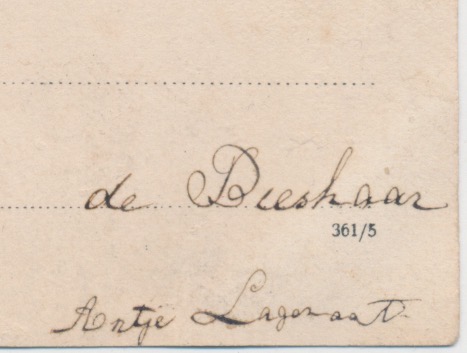 de Beeshaar
361/5
Antje Lagemaat